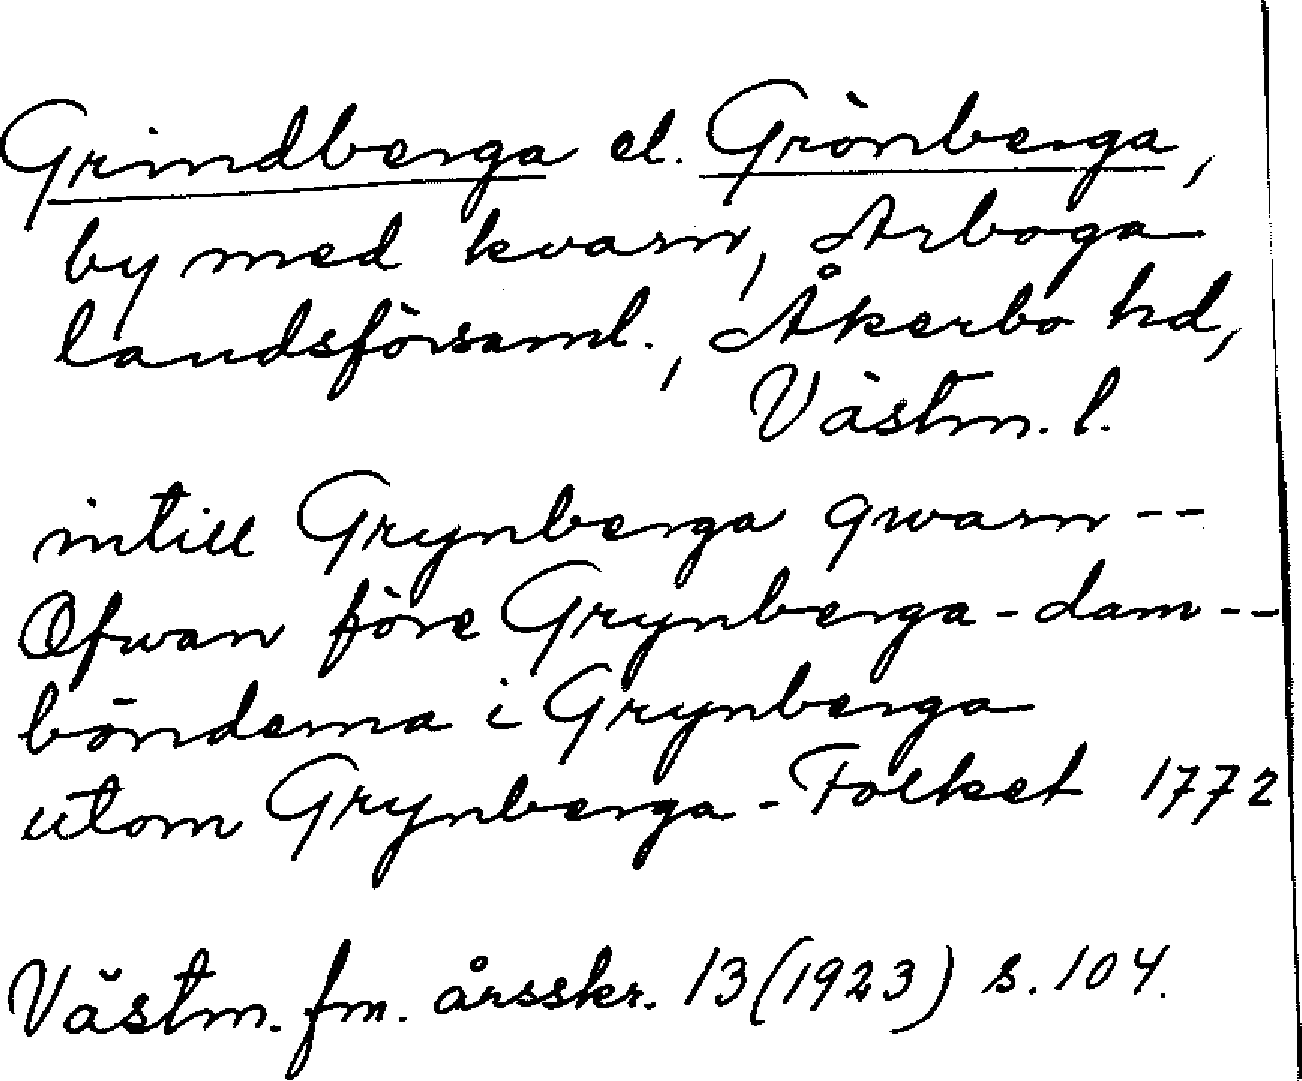 Grindberga el. Grönberga,
by med kvarn, Arboga
landsförsaml., Åkerbo hd,
Västm. l.
intill Grynberga qwarn --
Ofwan före Grynberga-dam --
bönderna i Grynberga
utom Grynberga-Folket 1772
Västm. fm. årsskr. 13 (1923) s. 104.